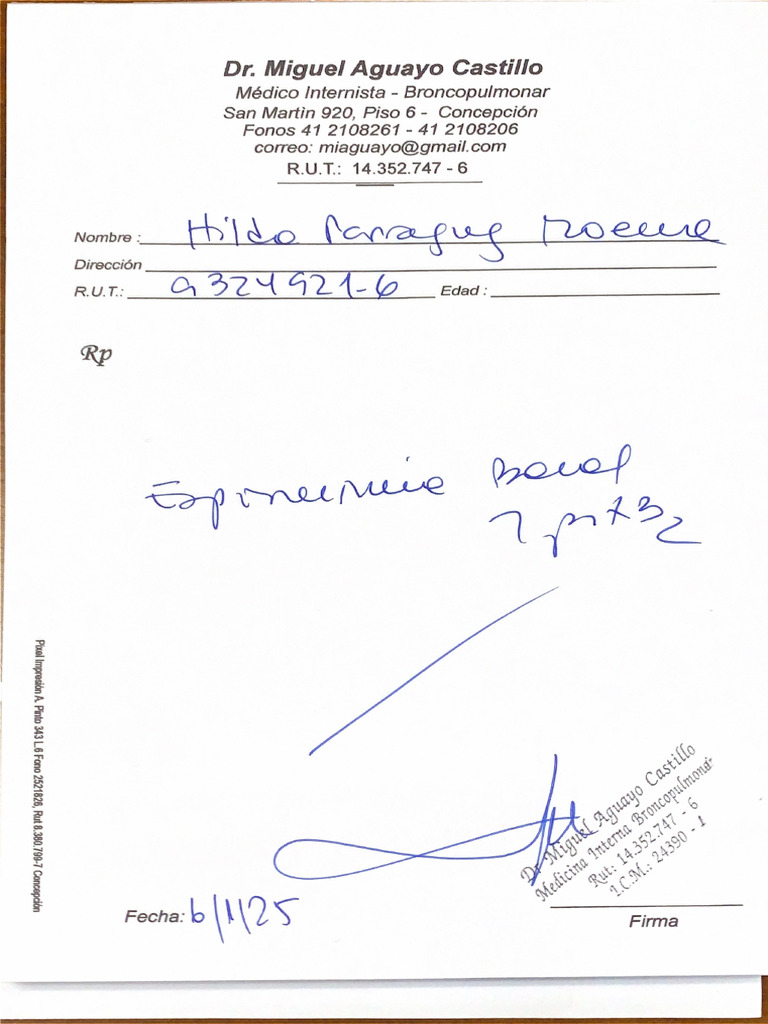 Dr. Miguel Aguayo Castillo
Médico Internista - Broncopulmonar
San Martìn 920, Piso 6 - Concepción
Fonos 41 2108261 - 41 2108206
correo: miaguayo@gmail.com
R.U.T.: 14.352.747 - 6
Nombre : Hilda Parraguez
Dirección
R.U.T.: 9324921-6 Edad :
Rp
Espirometria Basal
Dr Miguel Aguayo Castillo
Medicina Interna Broncopulmonar
Rut: 14.352.747 - 6
I.C.M.: 24390 - 1
Fecha: 6/1/25
Firma
Pixel Impresión A. Pinto 343 L.6 Fono 2521828, Rut 8.380.799-7 Concepción